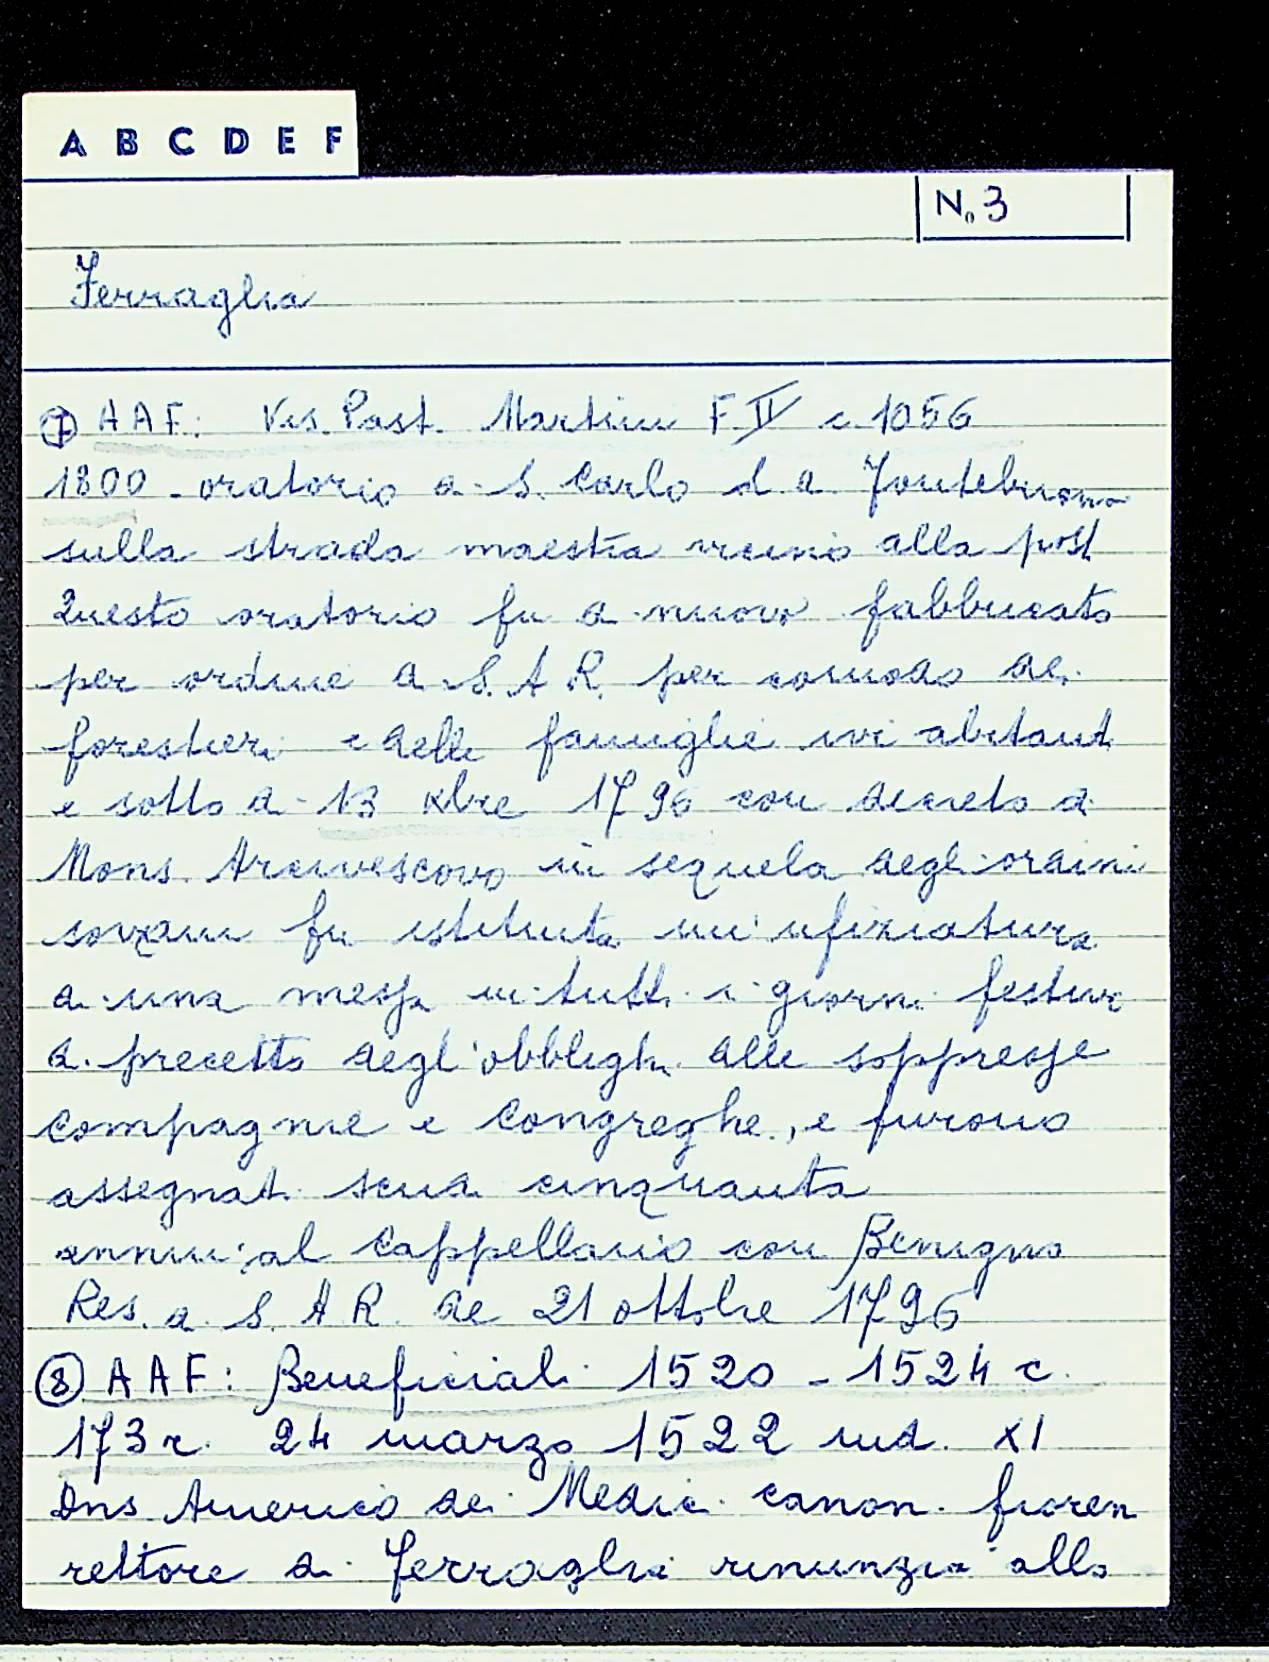 A B C D E F
N. 3
Ferraglia
⑦ AAF: Vis. Past. Martini F. IV c. 1056
1800 - oratorio di S. Carlo d. a Fontebuona
sulla strada maestra vicino alla post
Questo oratorio fu di nuovo fabbricato
per ordine di S. A. R. per comodo dei
forestieri e delle famiglie ivi abitant
e sotto di 13 xbre 1796 con decreto di
Mons. Arcivescovo in sequela degli ordini
sovrani fu istituita un' ufiziatura
di una messa in tutti i giorni festivi
di precetto degl'obblighi delle soppresse
compagnie e congreghe, e furono
assegnati scudi cinquanta
annui al Cappellano con Benigno
Res. di S. A R. de 21 ottobre 1796
⑧ AAF: Beneficiali 1520 - 1524 c.
173 r. 24 marzo 1522 ind. XI
Dns Americo dei Medici canon. fioren
rettore di Ferraglia rinunzia alla